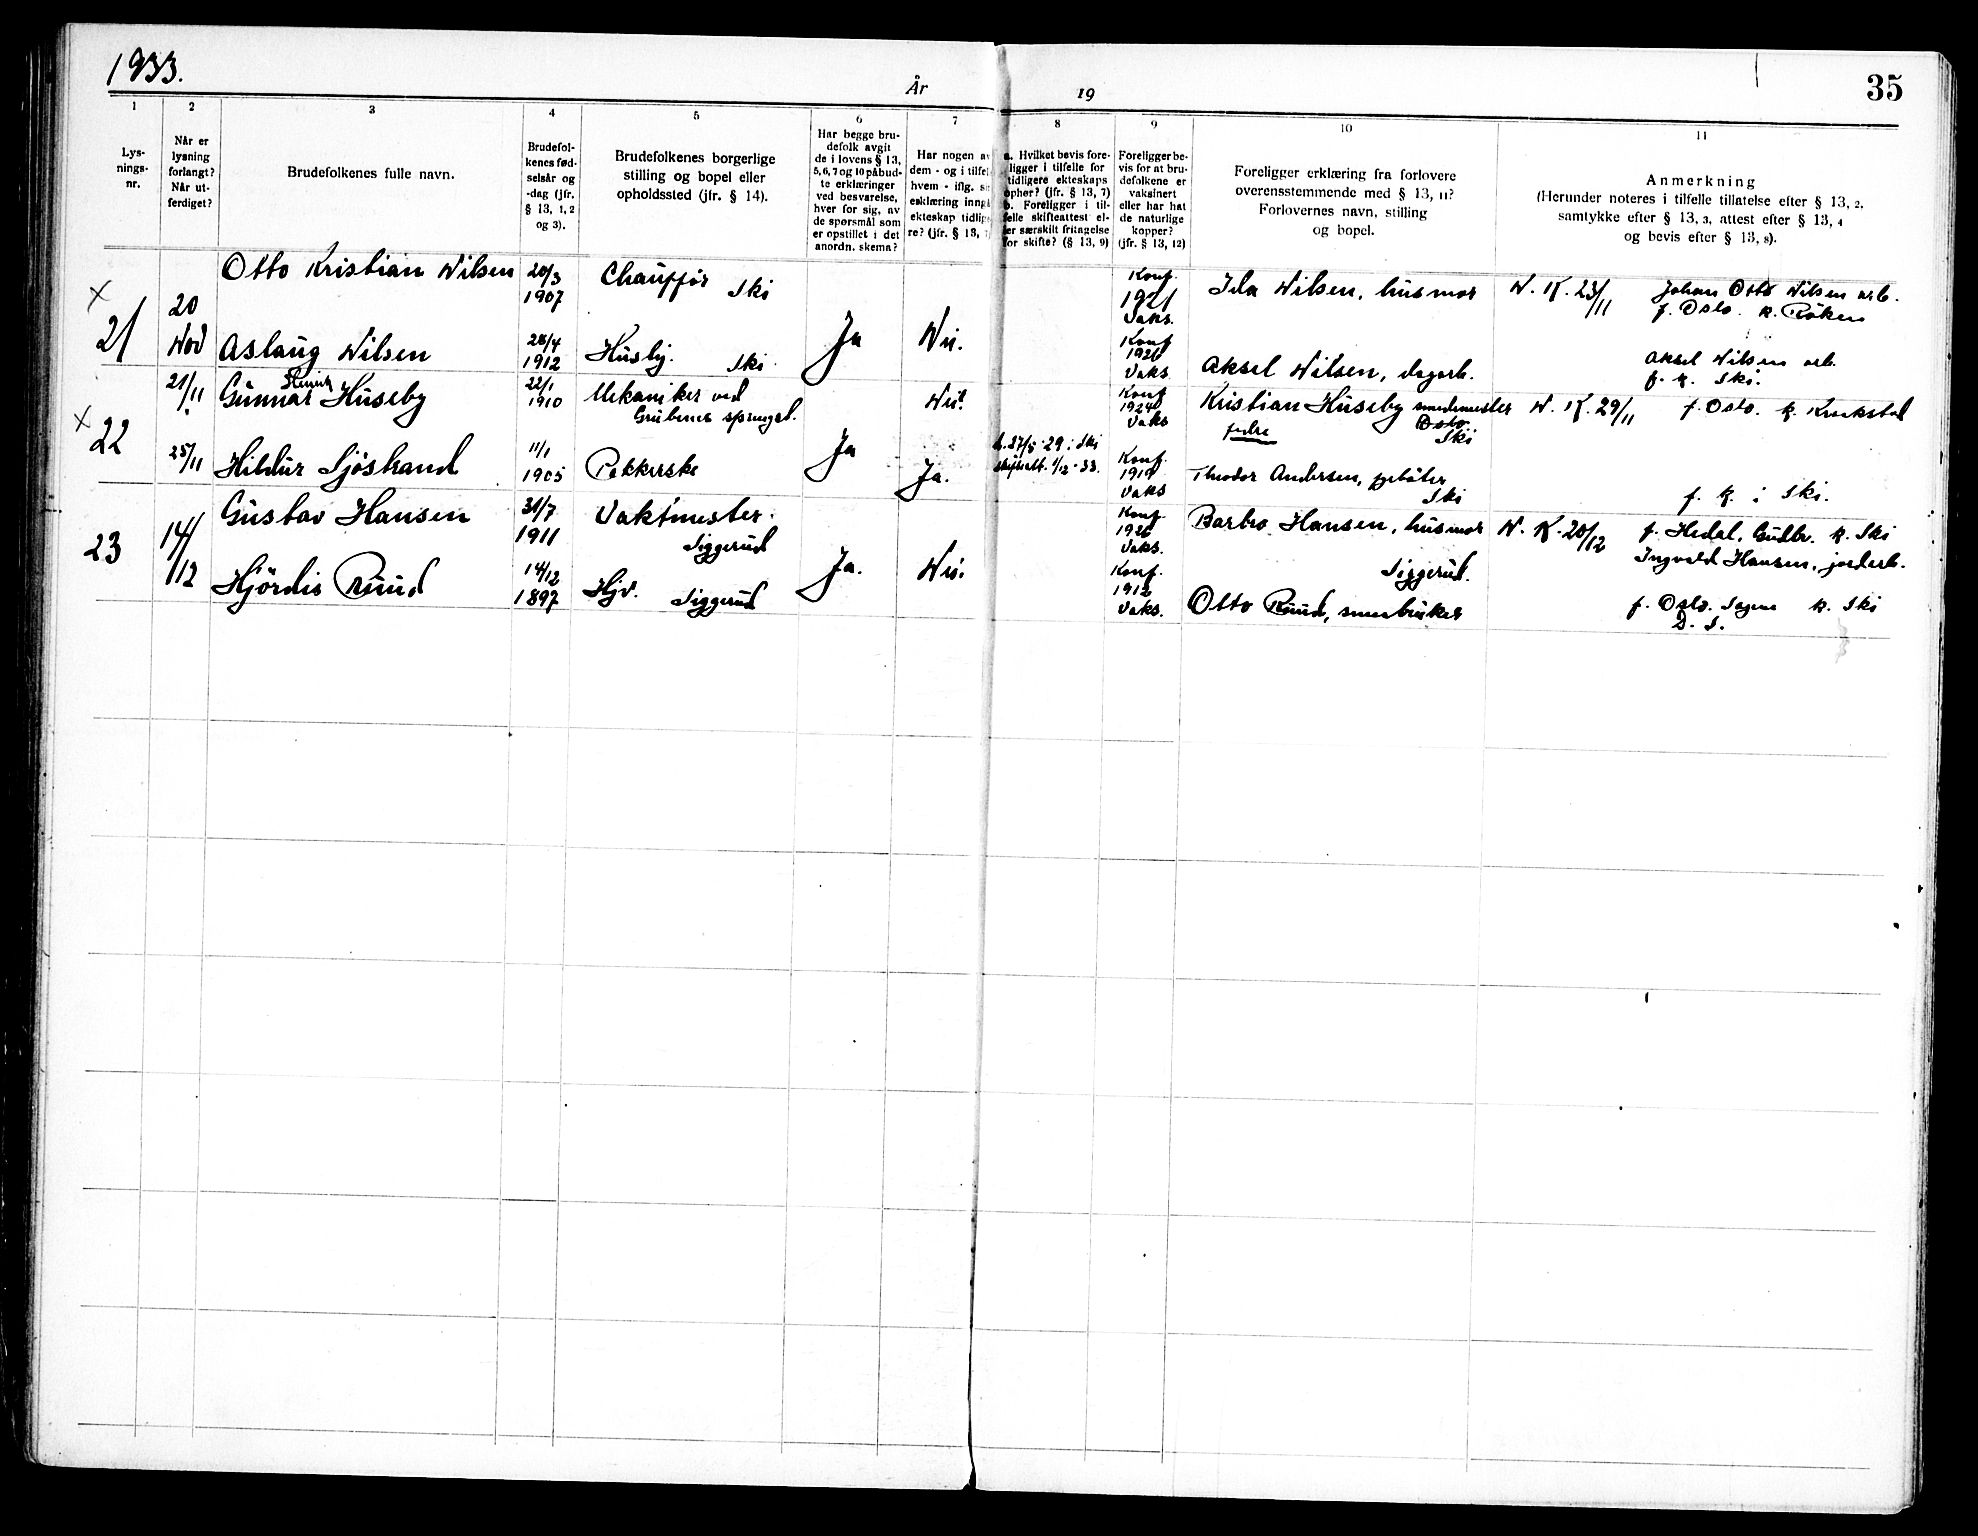 1933.
År 19
35
1
2
3
4
5
6
7
8
9
10
11
Lys-
nings-
nr.
Når er
lysning
forlangt?
Når ut-
ferdiget?
Brudefolkenes fulle navn.
Brudefol-
kenes fød-
selsår og
-dag (jfr.
§ 13, 1, 2
og 3).
Brudefolkenes borgerlige
stilling og bopel eller
opholdssted (jfr. § 14).
Har begge bru-
defolk avgit
de i lovens § 13,
5, 6, 7 og 10 påbud-
te erklæringer
ved besvarelse,
hver for sig, av
de spørsmål som
er opstillet i det
anordn. skema?
Har nogen av
dem - og i tilfel
hvem - iflg. si
erklæring inngå
ekteskap tidlig
re? (jfr. § 13,
a. Hvilket bevis fore-
ligger i tilfelle for
tidligere ekteskaps
ophør? (jfr. § 13, 7)
b. Foreligger i til-
felle skifteattest el-
ler særskilt fritagelse
for skifte? (§ 13, 9)
Foreligger be-
vis for at bru-
defolkene er
vaksinert
eller har hat
de naturlige
kopper?
(jfr. § 13, 12)
Foreligger erklæring fra forlovere
overensstemmende med § 13, 11?
Forlovernes navn, stilling
og bopel.
Anmerkning
(Herunder noteres i tilfelle tillatelse efter § 13, 2,
samtykke efter § 13, 3, attest efter § 13, 4
og bevis efter § 13, 8).
x
21
20
Nov
Otto Kristian Nilsen
20/3
1907
Chaufför
Ski
Aslaug Nilsen
28/4
1912
Husbj.
Ski
Ja
Nei.
Konf.
1921
Vaks.
Konf
1926
Vaks.
Ida Nilsen, husmor
Aksel Nilsen, dagarb.
N. K. 23/11
Johan Otto Nilsen arb.
f. Oslo. k. Röken
Aksel Nilsen arb.
f. k. Ski.
x
22
21/11
25/11
Gunnar Huseby
22/1
1910
Mekaniker ved
Grubenes sprengst.
Hildur Sjöstrand
11/1
1905
Ja
Nei.
Ja.
27/5 29 i Ski
1/12 - 33.
Konf
1924
Vaks
Konf.
1919
Vaks
Kristian Huseby smedmester
Oslo
Ski
Theodor Andersen,
Ski
N. K. 29/11
f. Oslo. k. Kraakstad
f. k. i Ski.
23
14/12
Gustav Hansen
31/7
1911
Vaktmester.
Siggerud
Hjördis Ruud
14/12
1897
Hjv.
Siggerud
Ja.
Nei.
Konf
1926
Vaks.
Konf.
1912
Vaks.
Barbro Hansen, husmor
Siggerud.
Otto Ruud, smaabruker
N. K. 20/12
f. Hedal, Gudbr. k. Ski
Ingvald Hansen, jordarb.
f. Oslo. Sagene k. Ski
D. S.